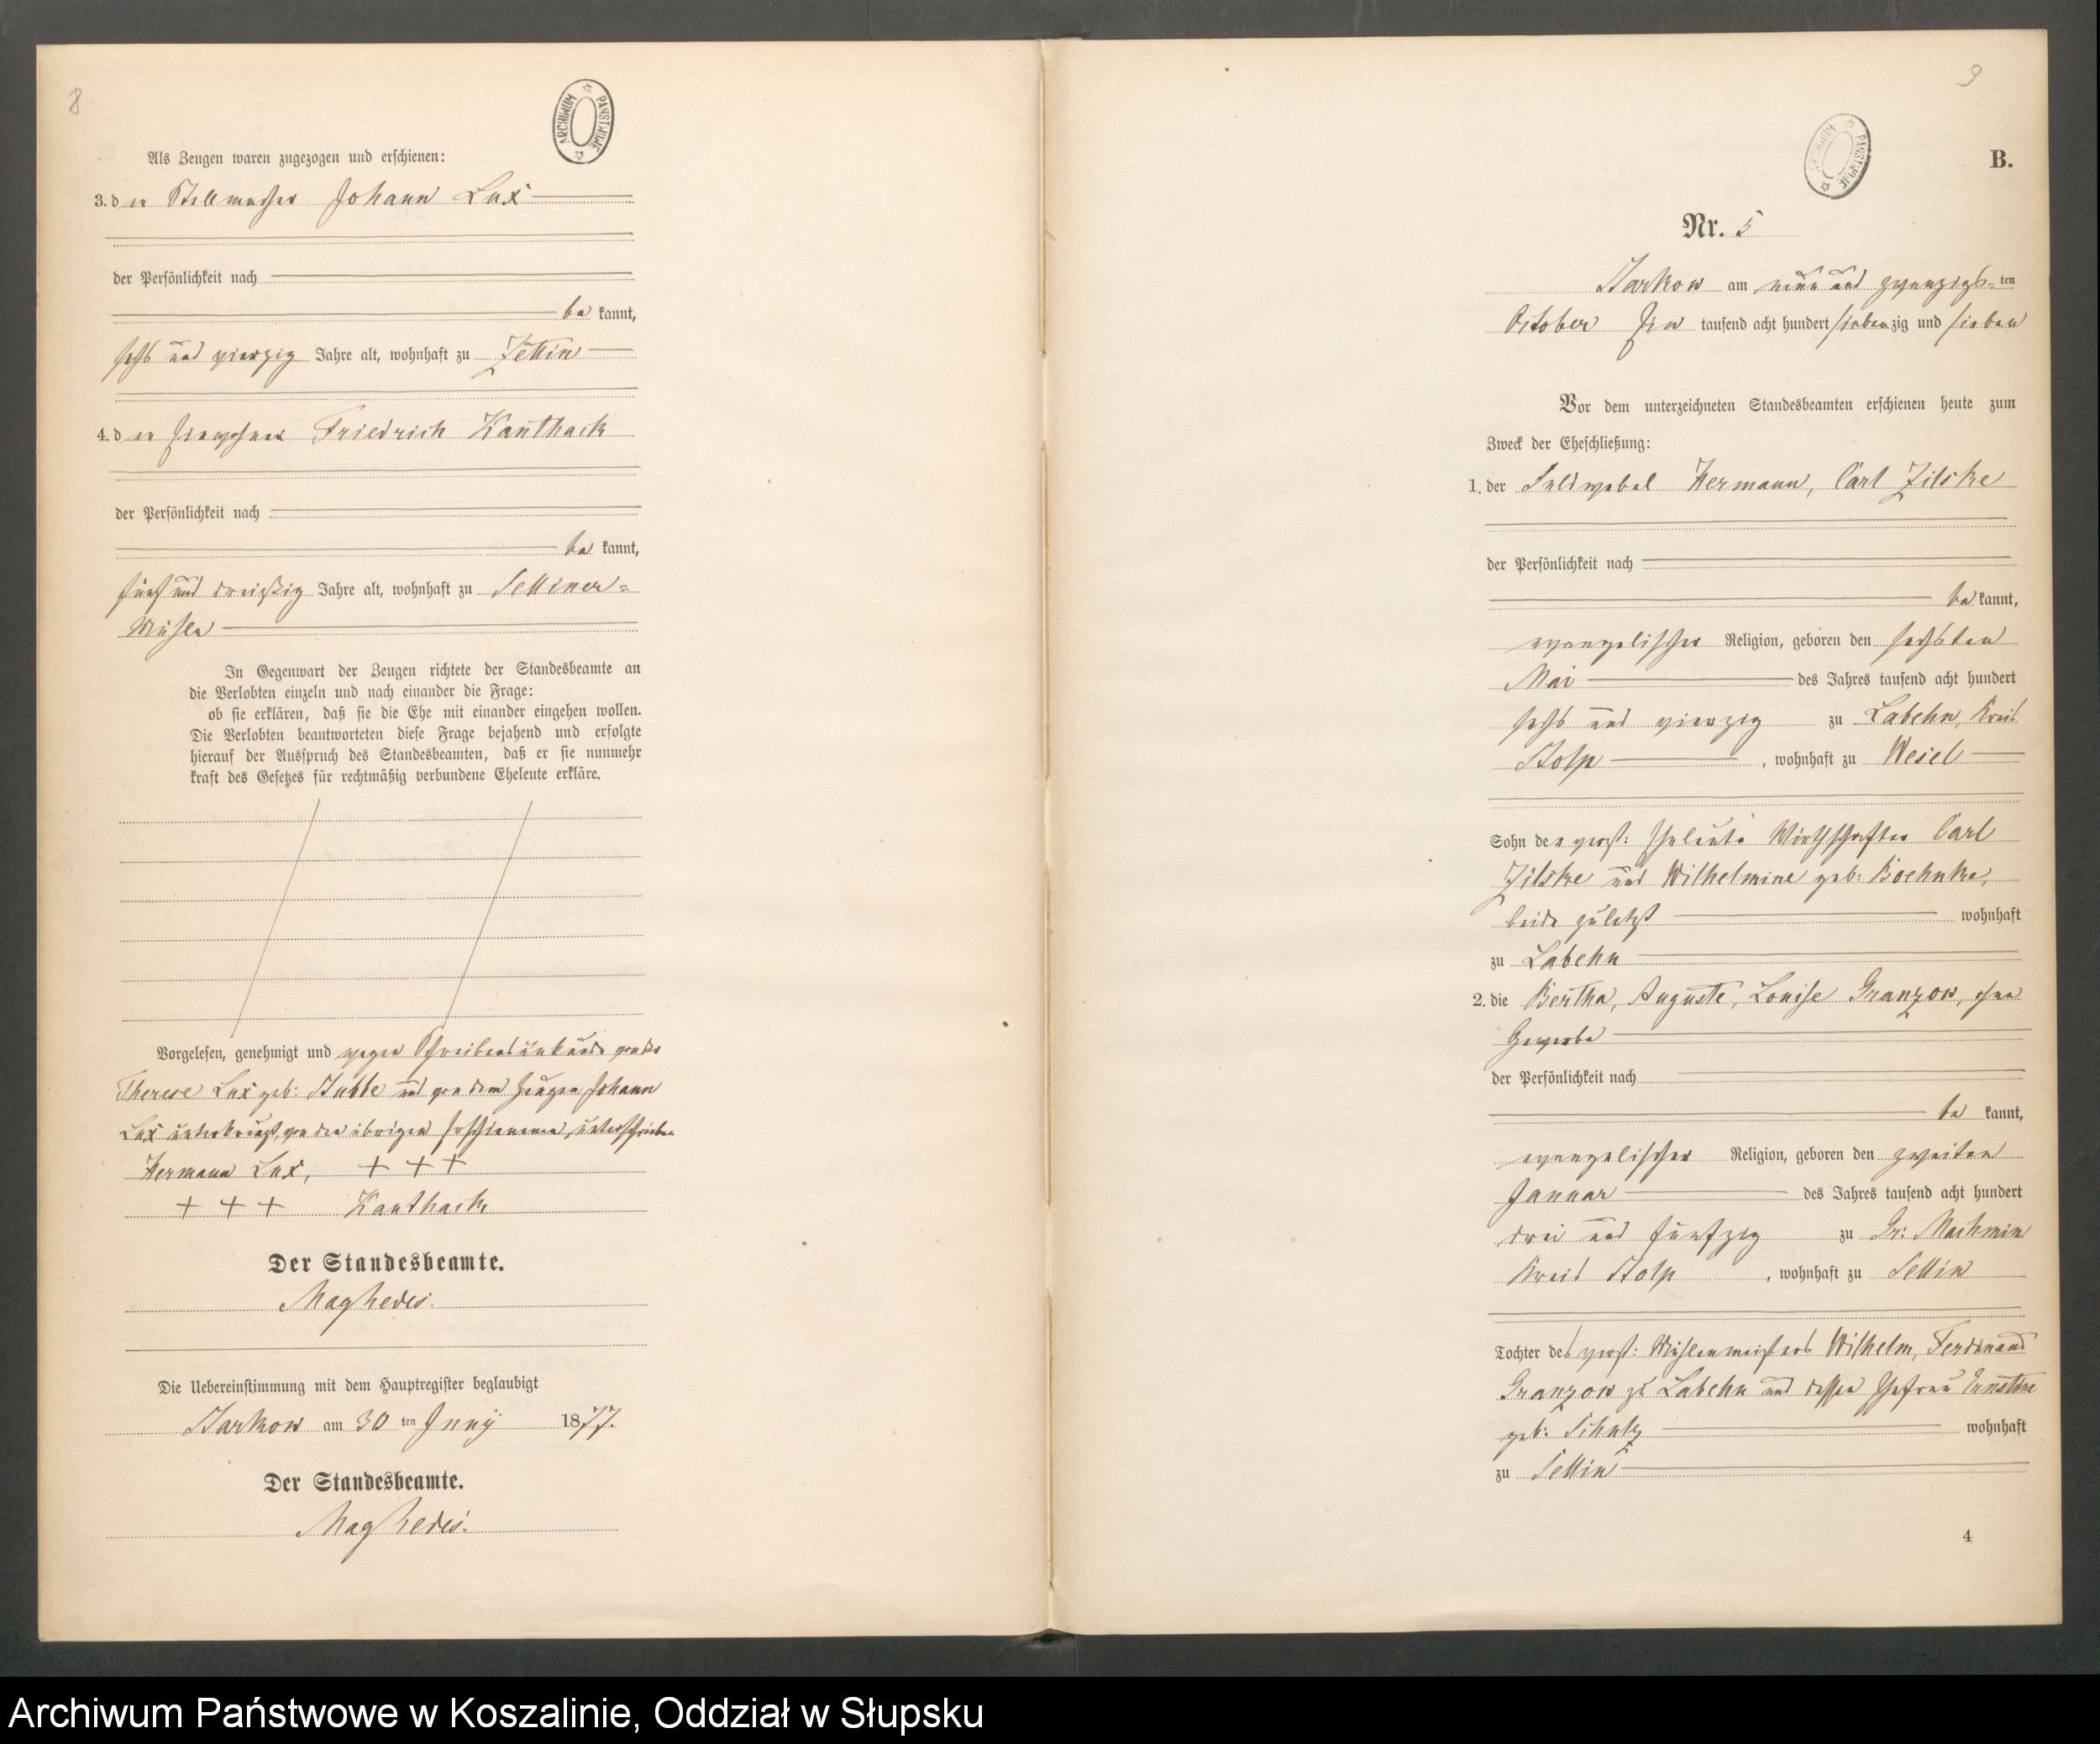 8
ARCHIWUM PAŃSTWOWE
Als Zeugen waren zugezogen und erschienen:
3. der Stellmacher Johann Lux
der Persönlichkeit nach
bekannt,
sechs und vierzig Jahre alt, wohnhaft zu Zettin
4. der Einwohner Friedrich Kanthack
der Persönlichkeit nach
bekannt,
fünf und dreißig Jahre alt, wohnhaft zu Settiner-
Mühle
In Gegenwart der Zeugen richtete der Standesbeamte an
die Verlobten einzeln und nach einander die Frage:
ob sie erklären, daß sie die Ehe mit einander eingehen wollen.
Die Verlobten beantworteten diese Frage bejahend und erfolgte
hierauf der Ausspruch des Standesbeamten, daß er sie nunmehr
kraft des Gesetzes für rechtmäßig verbundene Eheleute erkläre.
Vorgelesen, genehmigt und wegen Schreibensunkunde von der
Therese Lux geb: Stubbe und von dem Zeugen Johann
Lux unterkreuzt, von den übrigen Erschienenen, unterschrieben
Hermann Lux, + + +
+ + + Kanthack
Der Standesbeamte.
Die Uebereinstimmung mit dem Hauptregister beglaubigt
Starkow am 30 ten Juny 1877.
Der Standesbeamte.
9
ARCHIWUM PAŃSTWOWE
B.
Nr. 5
Starkow am neun und zwanzigs-ten
October Ein tausend acht hundert siebenzig und sieben
Vor dem unterzeichneten Standesbeamten erschienen heute zum
Zweck der Eheschließung:
1. der Feldwebel Hermann, Carl Zilske
der Persönlichkeit nach
bekannt,
evangelischer Religion, geboren den sechsten
Mai des Jahres tausend acht hundert
sechs und vierzig zu Labehn, Kreis
Stolp, wohnhaft zu Wesel
Sohn der verst: Eheleute Wirthschafter Carl
Zilske und Wilhelmine geb: Boehnke,
beide zuletzt wohnhaft
zu Labehn
2. die Bertha, Auguste, Louise Granzow, ohne
Gewerbe
der Persönlichkeit nach
bekannt,
evangelischer Religion, geboren den zweiten
Januar des Jahres tausend acht hundert
drei und fünfzig zu Gr: Machmin
Kreis Stolp, wohnhaft zu Settin
Tochter des verst: Mühlenmeisters Wilhelm, Ferdinand
Granzow zu Labehn und dessen Ehefrau Ernstine
geb: Schulz wohnhaft
zu Settin
4
Archiwum Państwowe w Koszalinie, Oddział w Słupsku